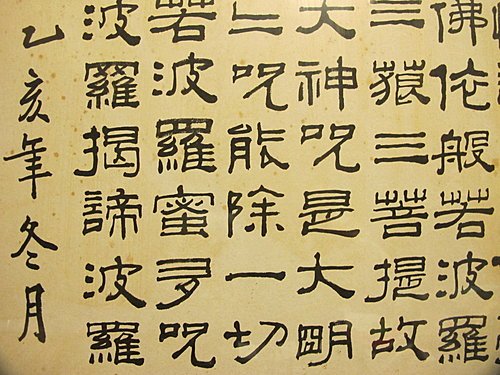 佛依般若波羅
三藐三菩提故
大神呪是大明
上呪能除一切
若波羅蜜多呪
波羅揭諦波羅
乙亥年冬月